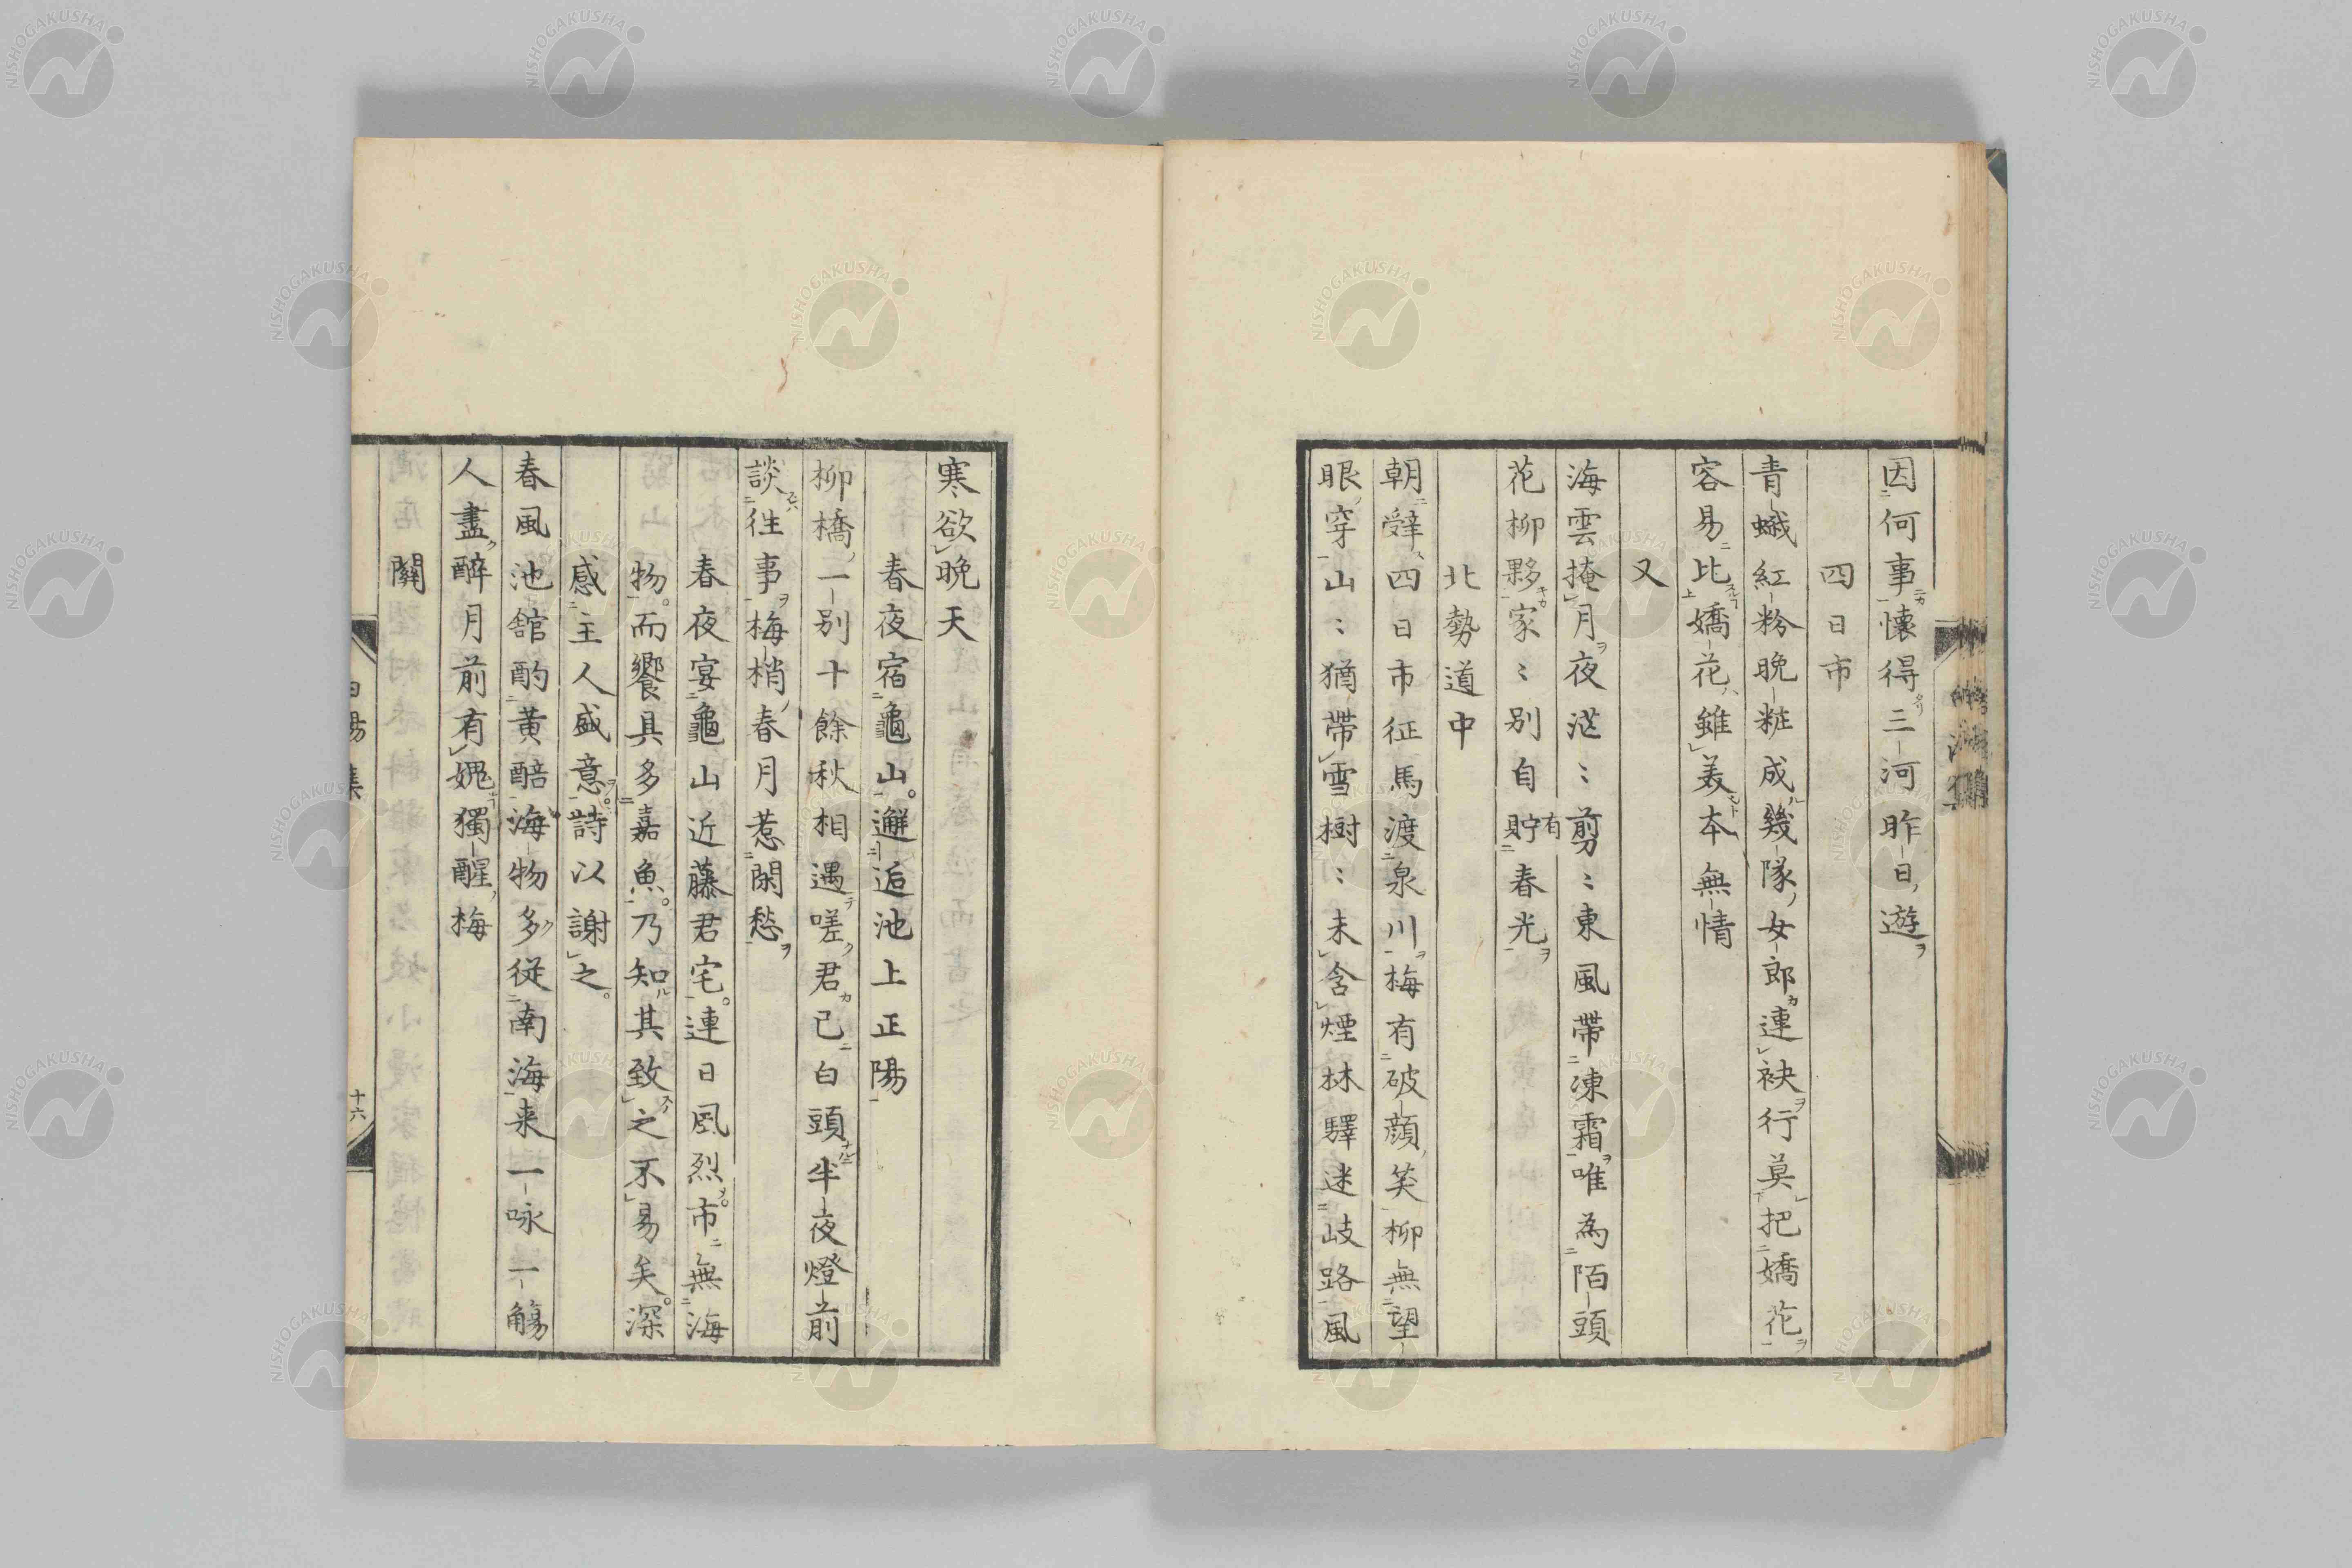 因何事懷得三河昨日遊
四日市
青蛾紅粉晩粧成幾隊女郎連袂行莫把嬌花
容易比嬌花雖美本無情
又
海雲掩月夜茫〻剪〻東風帶凍霜唯為陌頭
花柳夥家〻別自貯有春光
北勢道中
朝辭四日市征馬渡泉川梅有破顔笑柳無望
眼穿山〻猶帶雪樹〻未含煙林驛迷岐路風
寒欲晩天
春夜宿龜山邂逅池上正陽
柳橋一別十餘秋相遇嗟君已白頭半夜燈前
談往事梅梢春月惹閑愁
春夜宴龜山近藤君宅連日風烈市無海
物而饗具多嘉魚乃知其致之不易矣深
感主人盛意詩以謝之
春風池舘酌黄醅海物多從南海来一咏一觴
人盡醉月前有媿獨醒梅
關
十六
NISHOGAKUSHA